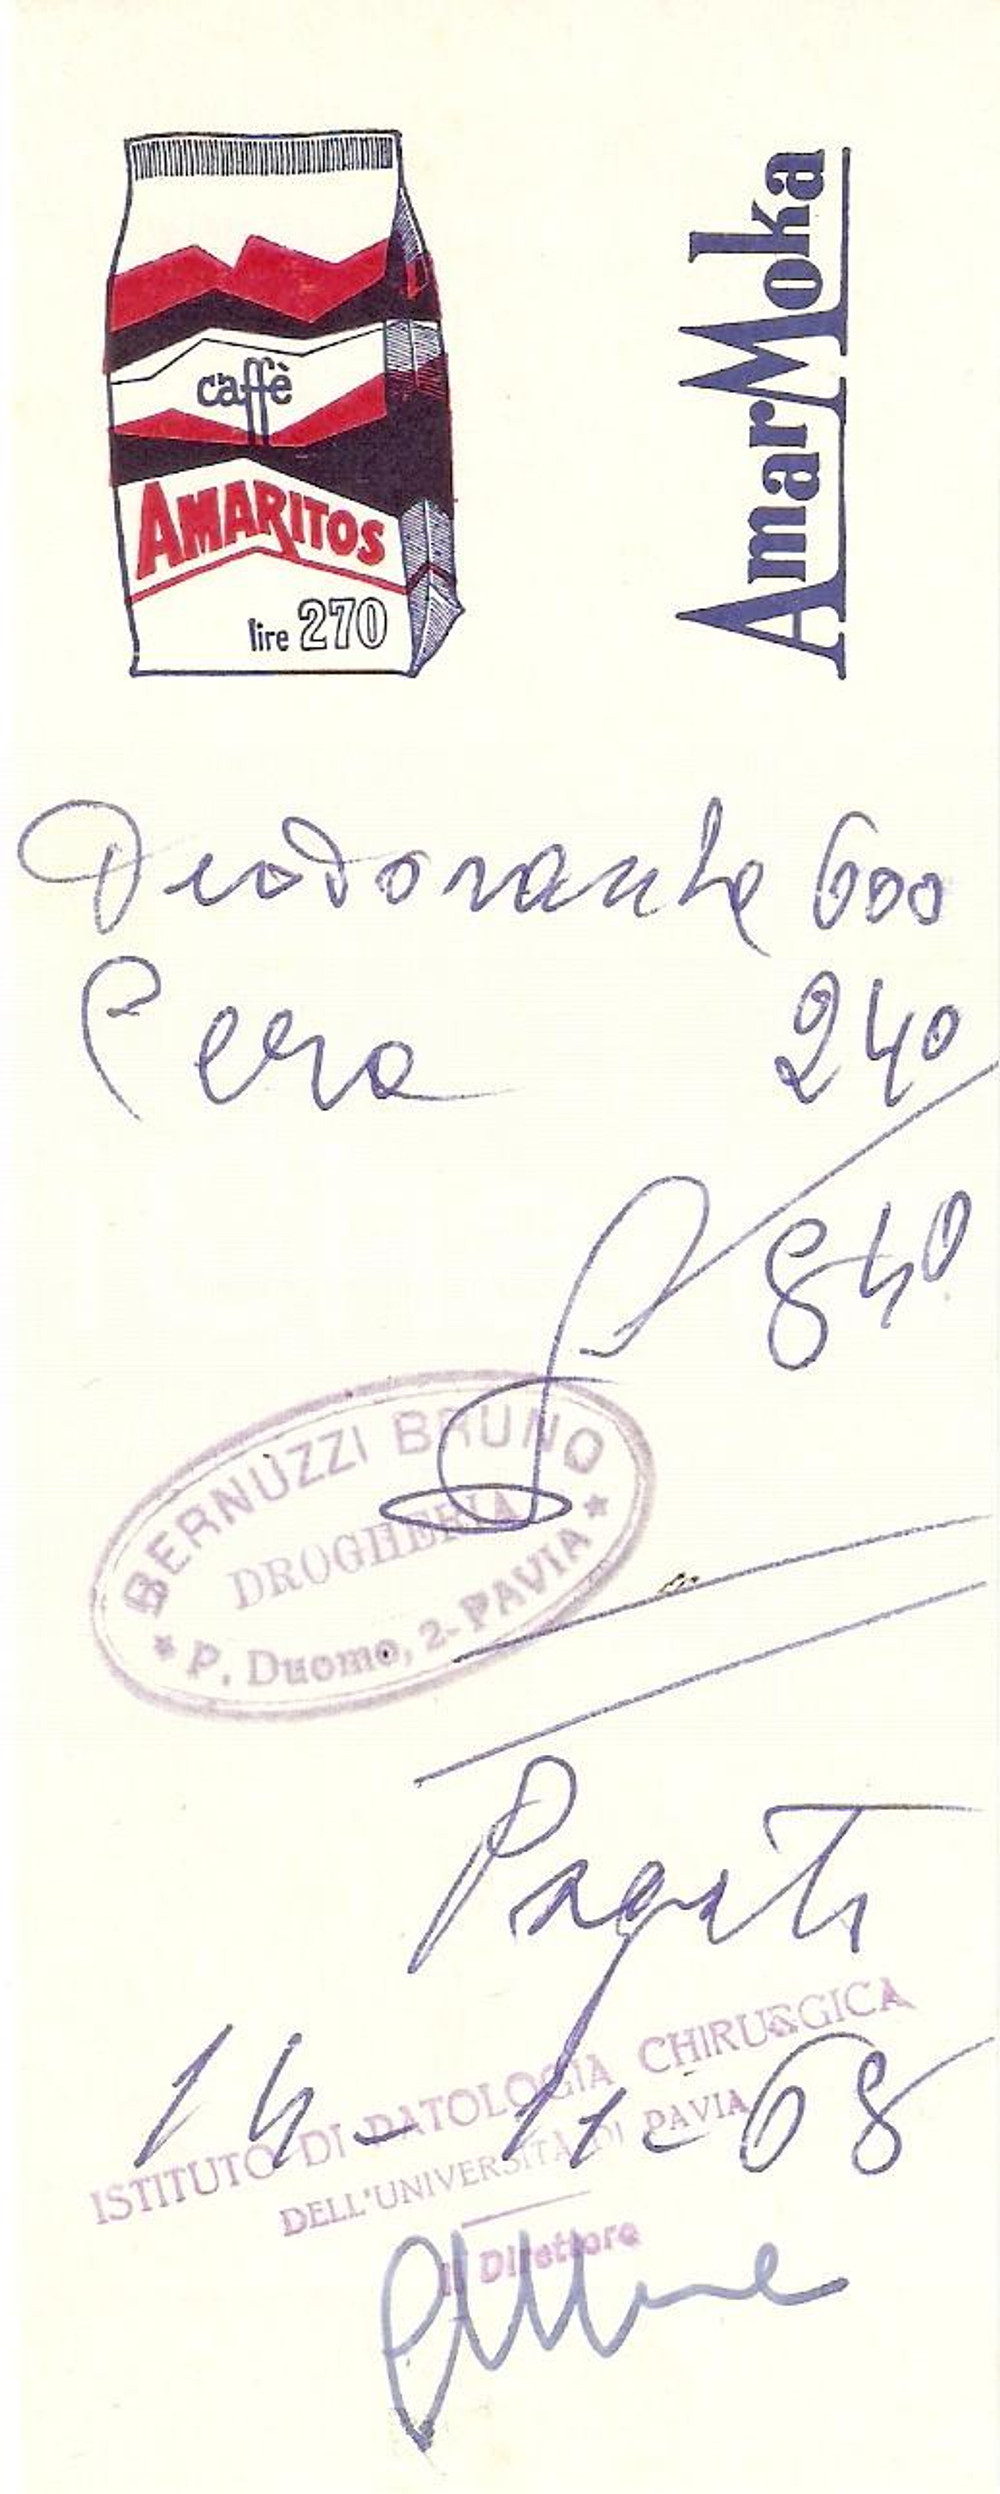 caffè
AMARITOS
lire 270
AmarMoka
Deodorante 600
Cera 240
840
BERNUZZI BRUNO
DROGHERIA
P. Duomo, 2 - PAVIA
Pagato
14-11-68
ISTITUTO DI PATOLOGIA CHIRURGICA
DELL'UNIVERSITÀ DI PAVIA
Il Direttore